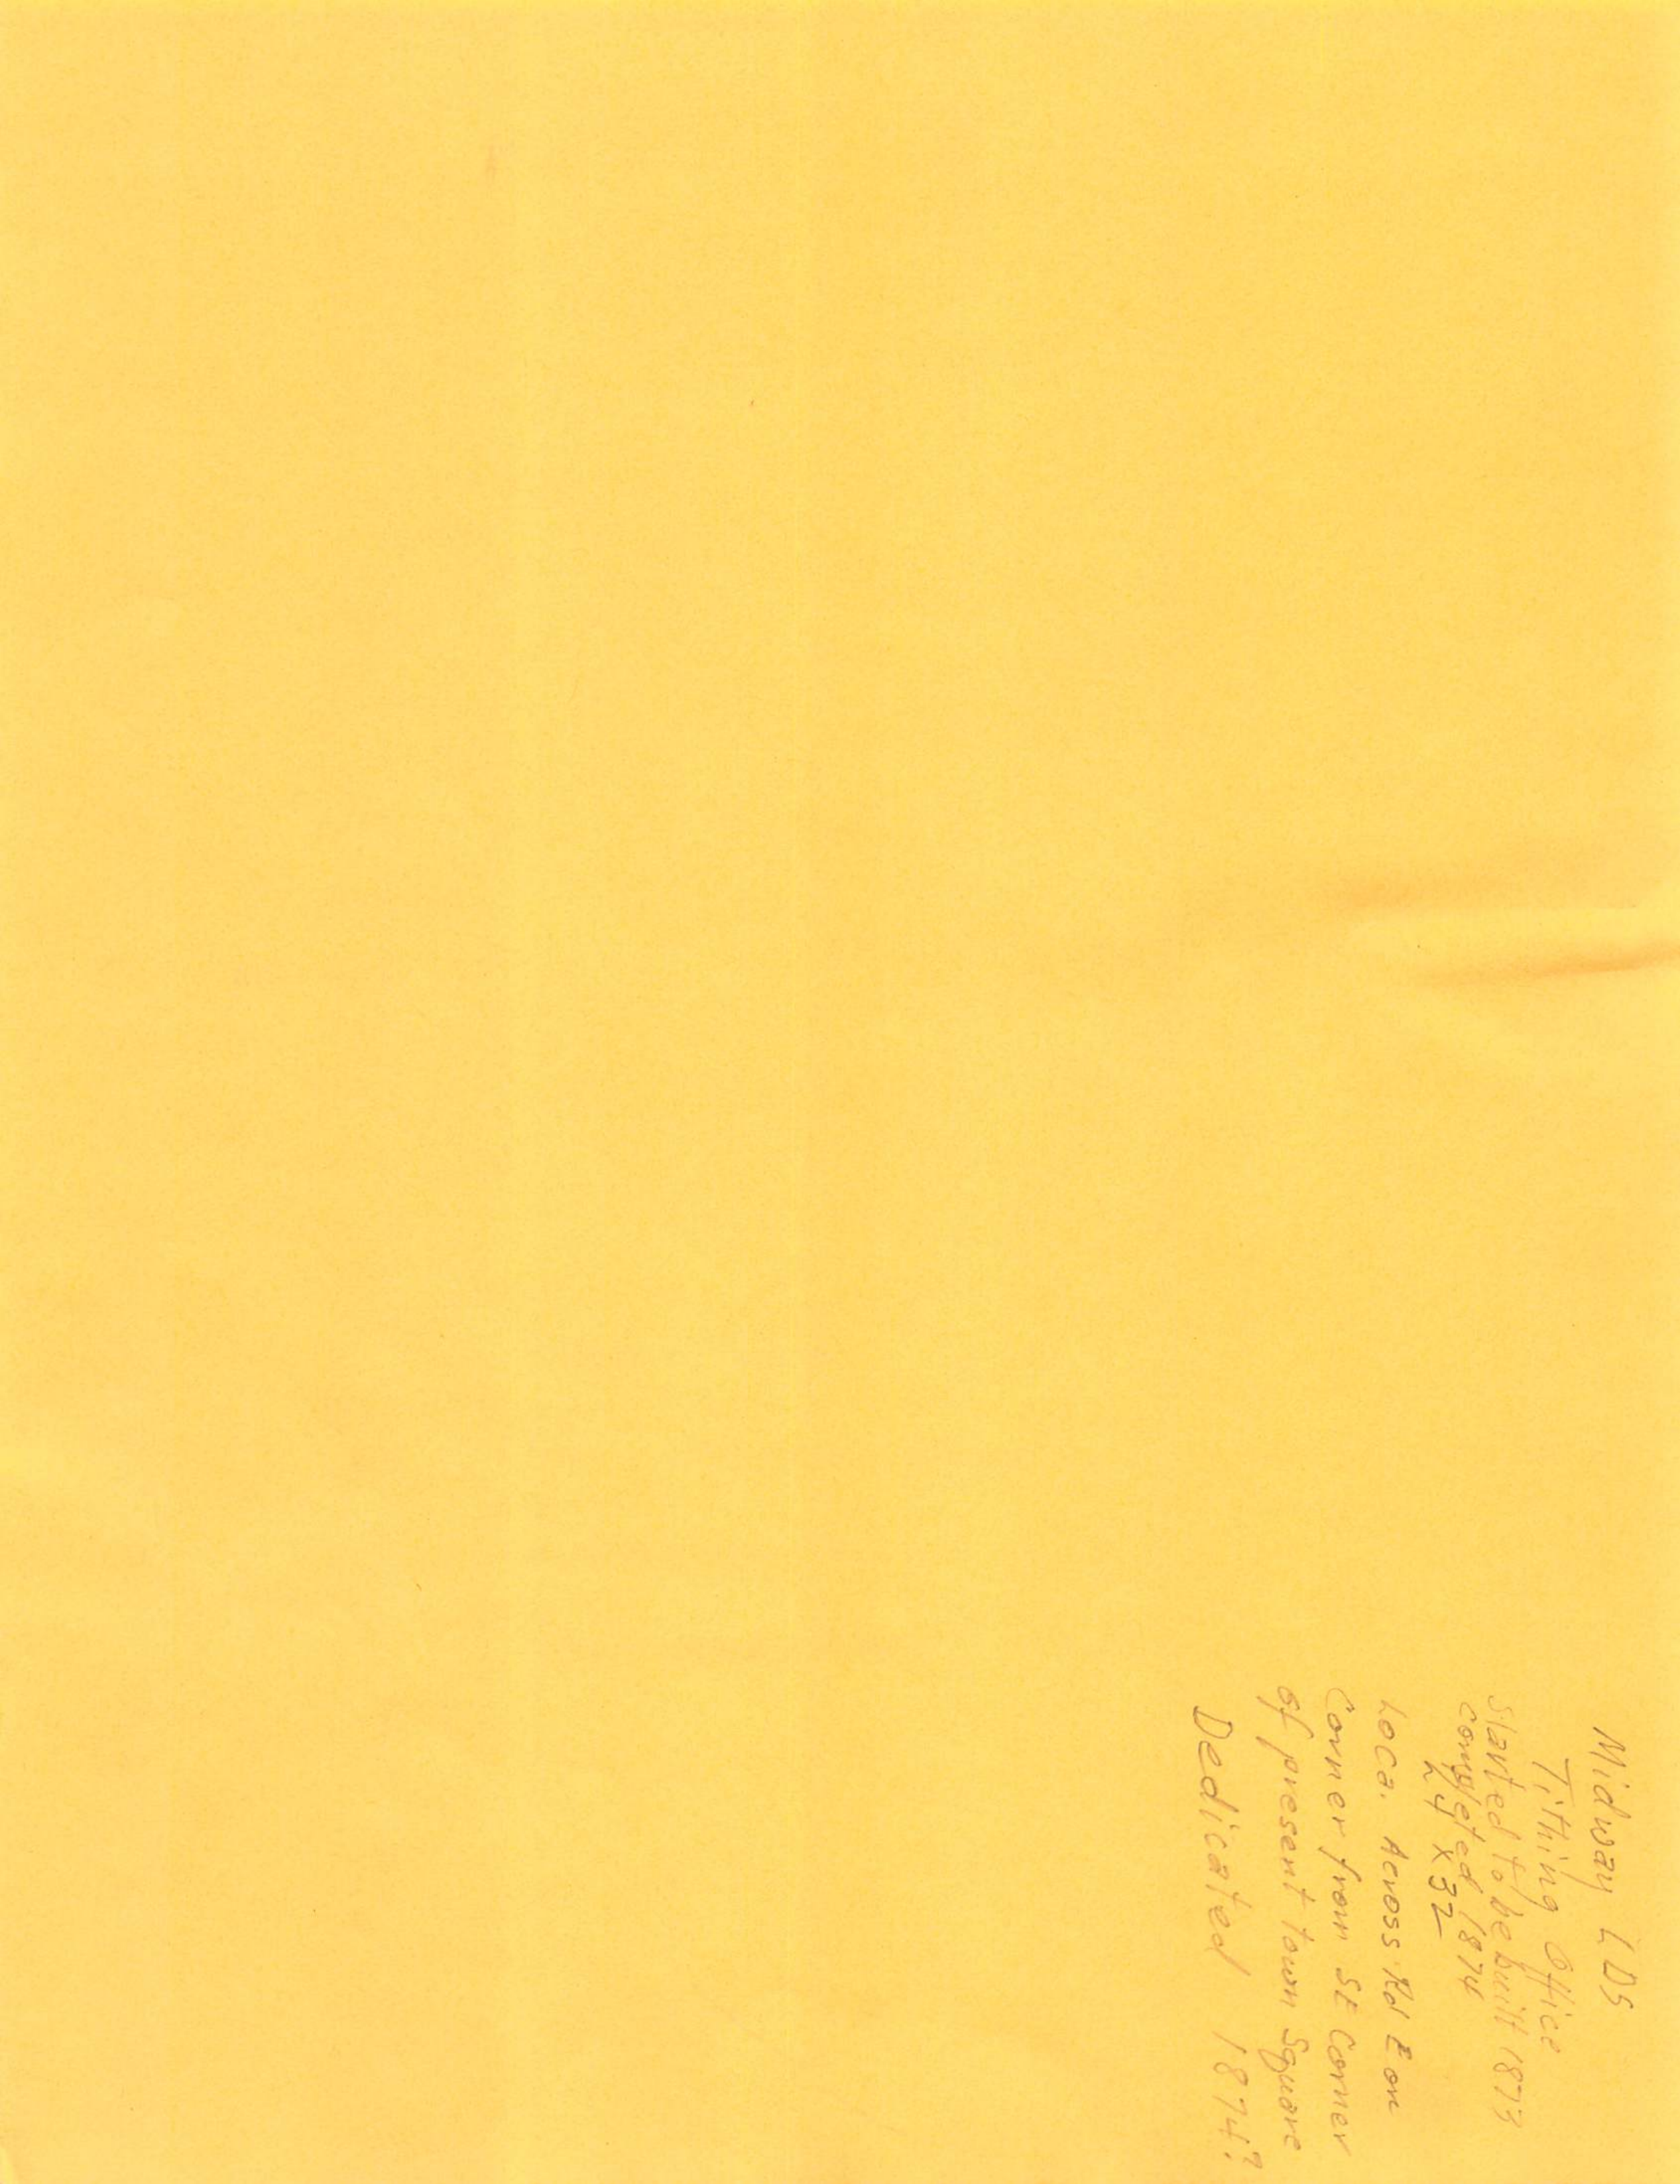 Midway LDS
Tithing Office
Started to be built 1873
completed 1874
24 x 32
Loca. Across Rd E on
Corner from SE Corner
of present town Square
Dedicated 1874?